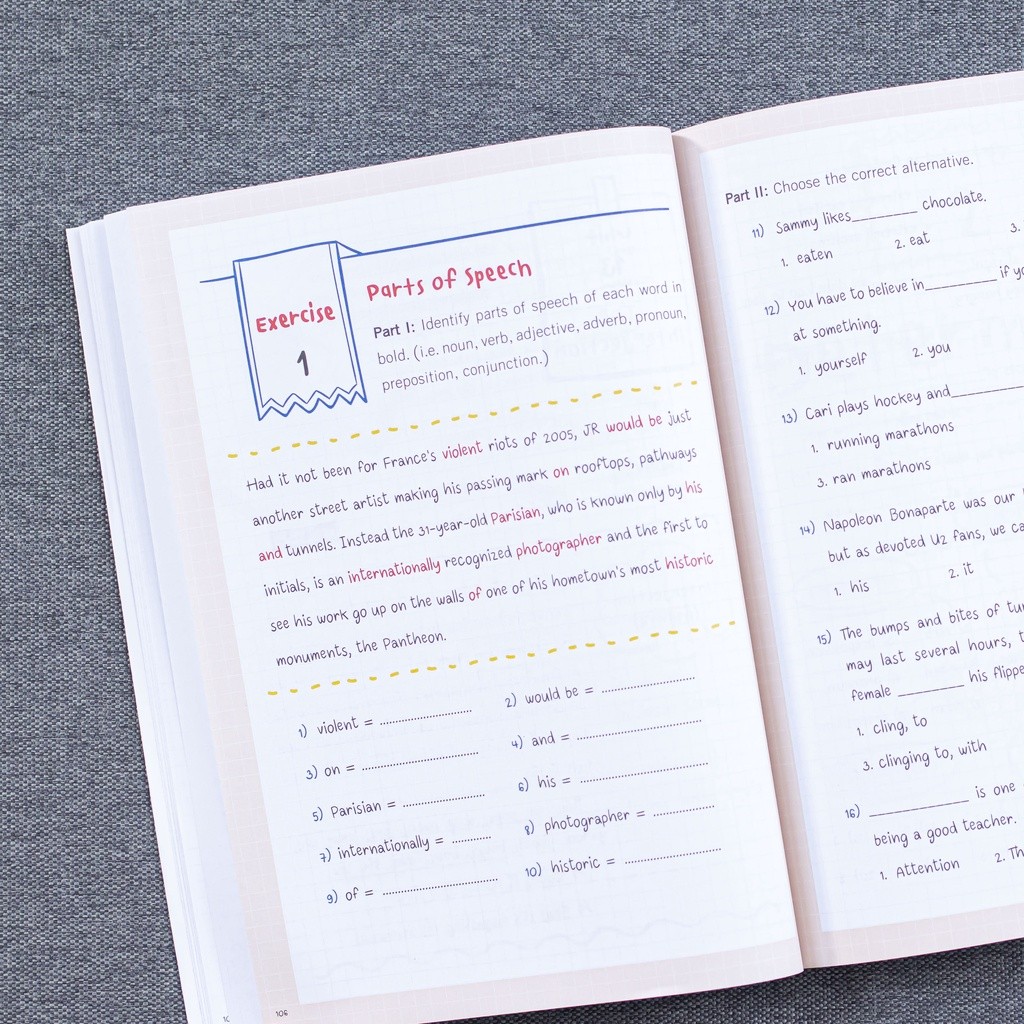 Exercise
1
Parts of Speech
Part I: Identify parts of speech of each word in
bold. (i.e. noun, verb, adjective, adverb, pronoun,
preposition, conjunction.)
Had it not been for France's violent riots of 2005, JR would be just
another street artist making his passing mark on rooftops, pathways
and tunnels. Instead the 31-year-old Parisian, who is known only by his
initials, is an internationally recognized photographer and the first to
see his work go up on the walls of one of his hometown's most historic
monuments, the Pantheon.
1) violent = ....................
2) would be = ....................
3) on = ....................
4) and = ....................
5) Parisian = ....................
6) his = ....................
7) internationally = ..........
8) photographer = ....................
9) of = ....................
10) historic = ....................
106
Part II: Choose the correct alternative.
11) Sammy likes________ chocolate.
1. eaten 2. eat 3.
12) You have to believe in_________ if
at something.
1. yourself 2. you
13) Cari plays hockey and_________
1. running marathons
3. ran marathons
14) Napoleon Bonaparte was our
but as devoted U2 fans, we
1. his 2. it
15) The bumps and bites of
may last several hours,
female ________ his
1. cling, to
3. clinging to, with
16) ____________ is one
being a good teacher.
1. Attention 2.